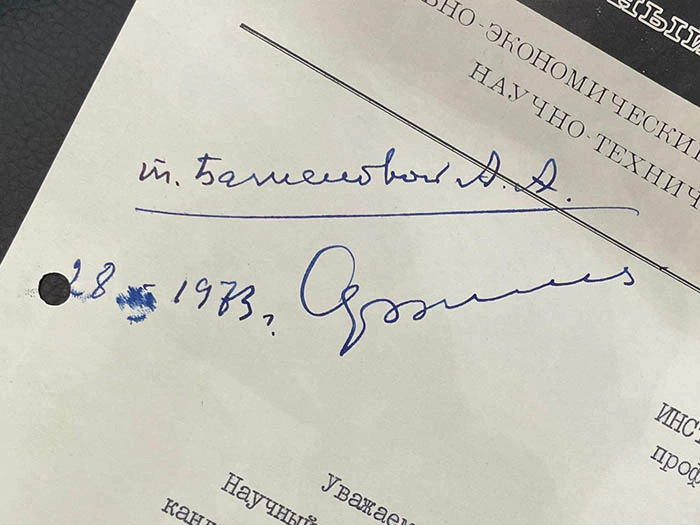 НЫЙ
ЬНО-ЭКОНОМИЧЕСКИ
НАУЧНО-ТЕХНИЧ
т. Баженовой А. А.
28 1973 г.
ИНСТ
проф
Уважаем
Научный
канд